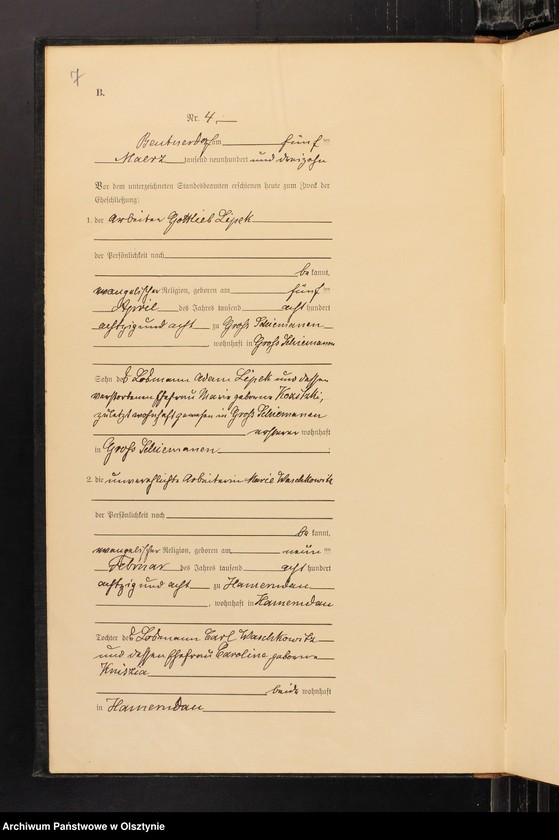 7
B.
Nr. 4.
Beutnerdorf am fünf ten
Maerz tausend neunhundert und dreizehn
Vor dem unterzeichneten Standesbeamten erschienen heute zum Zweck der
Eheschließung:
1. der Arbeiter Gottlieb Lipek
der Persönlichkeit nach
be kannt,
evangelischer Religion, geboren am fünf ten
April des Jahres tausend acht hundert
achtzig und acht zu Groß Schiemanen
, wohnhaft in Groß Schiemanen
Sohn des Losmann Adam Lipek und dessen
verstorbenen Ehefrau Marie geborene
zuletzt wohnhaft gewesen in Groß Schiemanen
ersterer wohnhaft
in Groß Schiemanen
2. die unverehelichte Arbeiterin Marie Waschkowitz
der Persönlichkeit nach
be kannt,
evangelischer Religion, geboren am neun ten
Februar des Jahres tausend acht hundert
achtzig und acht zu Hamerudau
, wohnhaft in Hamerudau
Tochter des Losmann Carl Waschkowitz
und dessen Ehefrau Caroline geborene
beide wohnhaft
in Hamerudau
Archiwum Państwowe w Olsztynie